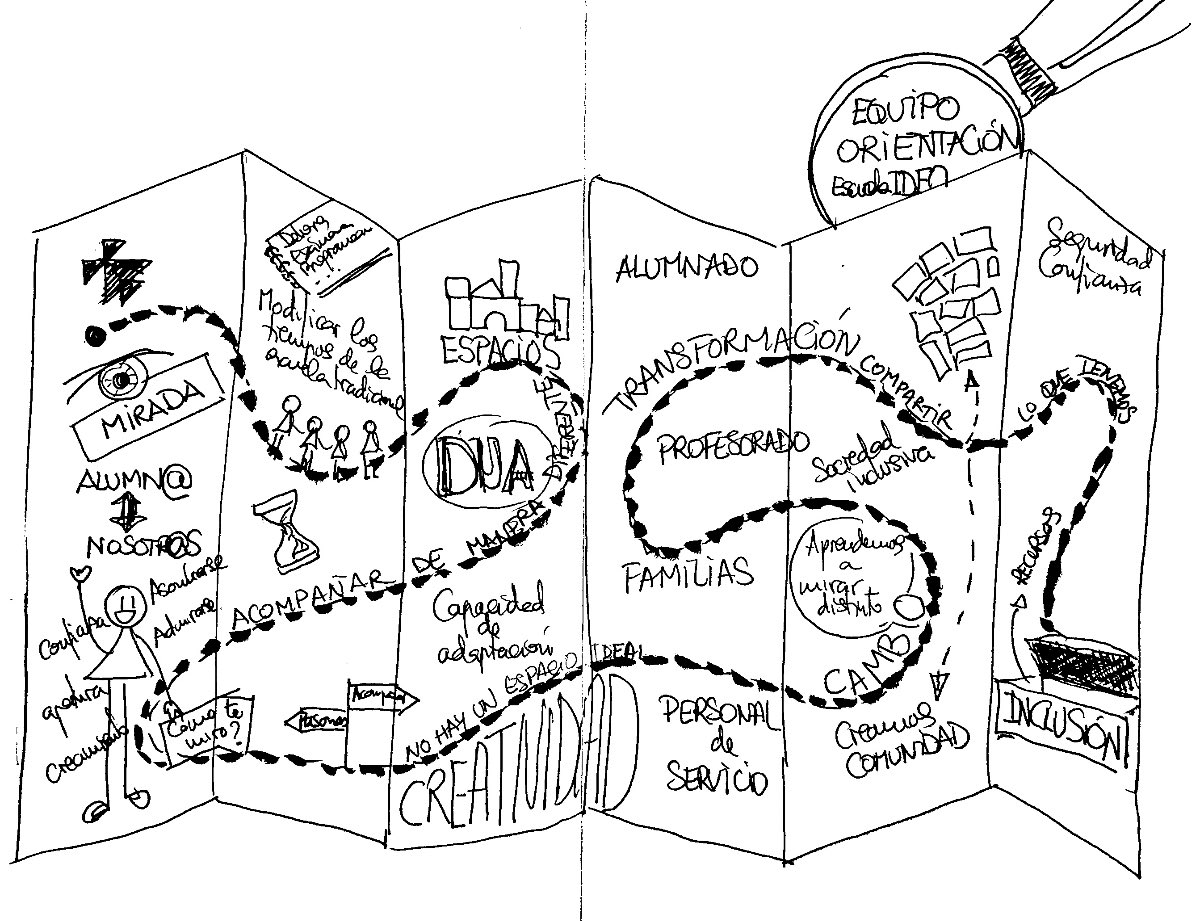 EQUIPO
ORIENTACIÓN
Escuela IDEO
MIRADA
ALUMN@
NOSOTR@S
Asombrarse
Admirarse
Confianza
apertura
Crecimiento
¿Cómo te
miro?
Modificar los
tiempos de la
escuela tradicional
ACOMPAÑAR DE MANERA DIFERENTE
Acompañar
ESPACIOS
DUA
Capacidad
de
adaptación
NO HAY UN ESPACIO IDEAL
CREATIVIDAD
ALUMNADO
TRANSFORMACIÓN
PROFESORADO
FAMILIAS
PERSONAL
de
SERVICIO
COMPARTIR LO QUE TENEMOS
Sociedad
inclusiva
Aprendemos
a
mirar
distinto
CAMBIO
Creamos
COMUNIDAD
Seguridad
Confianza
RECURSOS
INCLUSIÓN